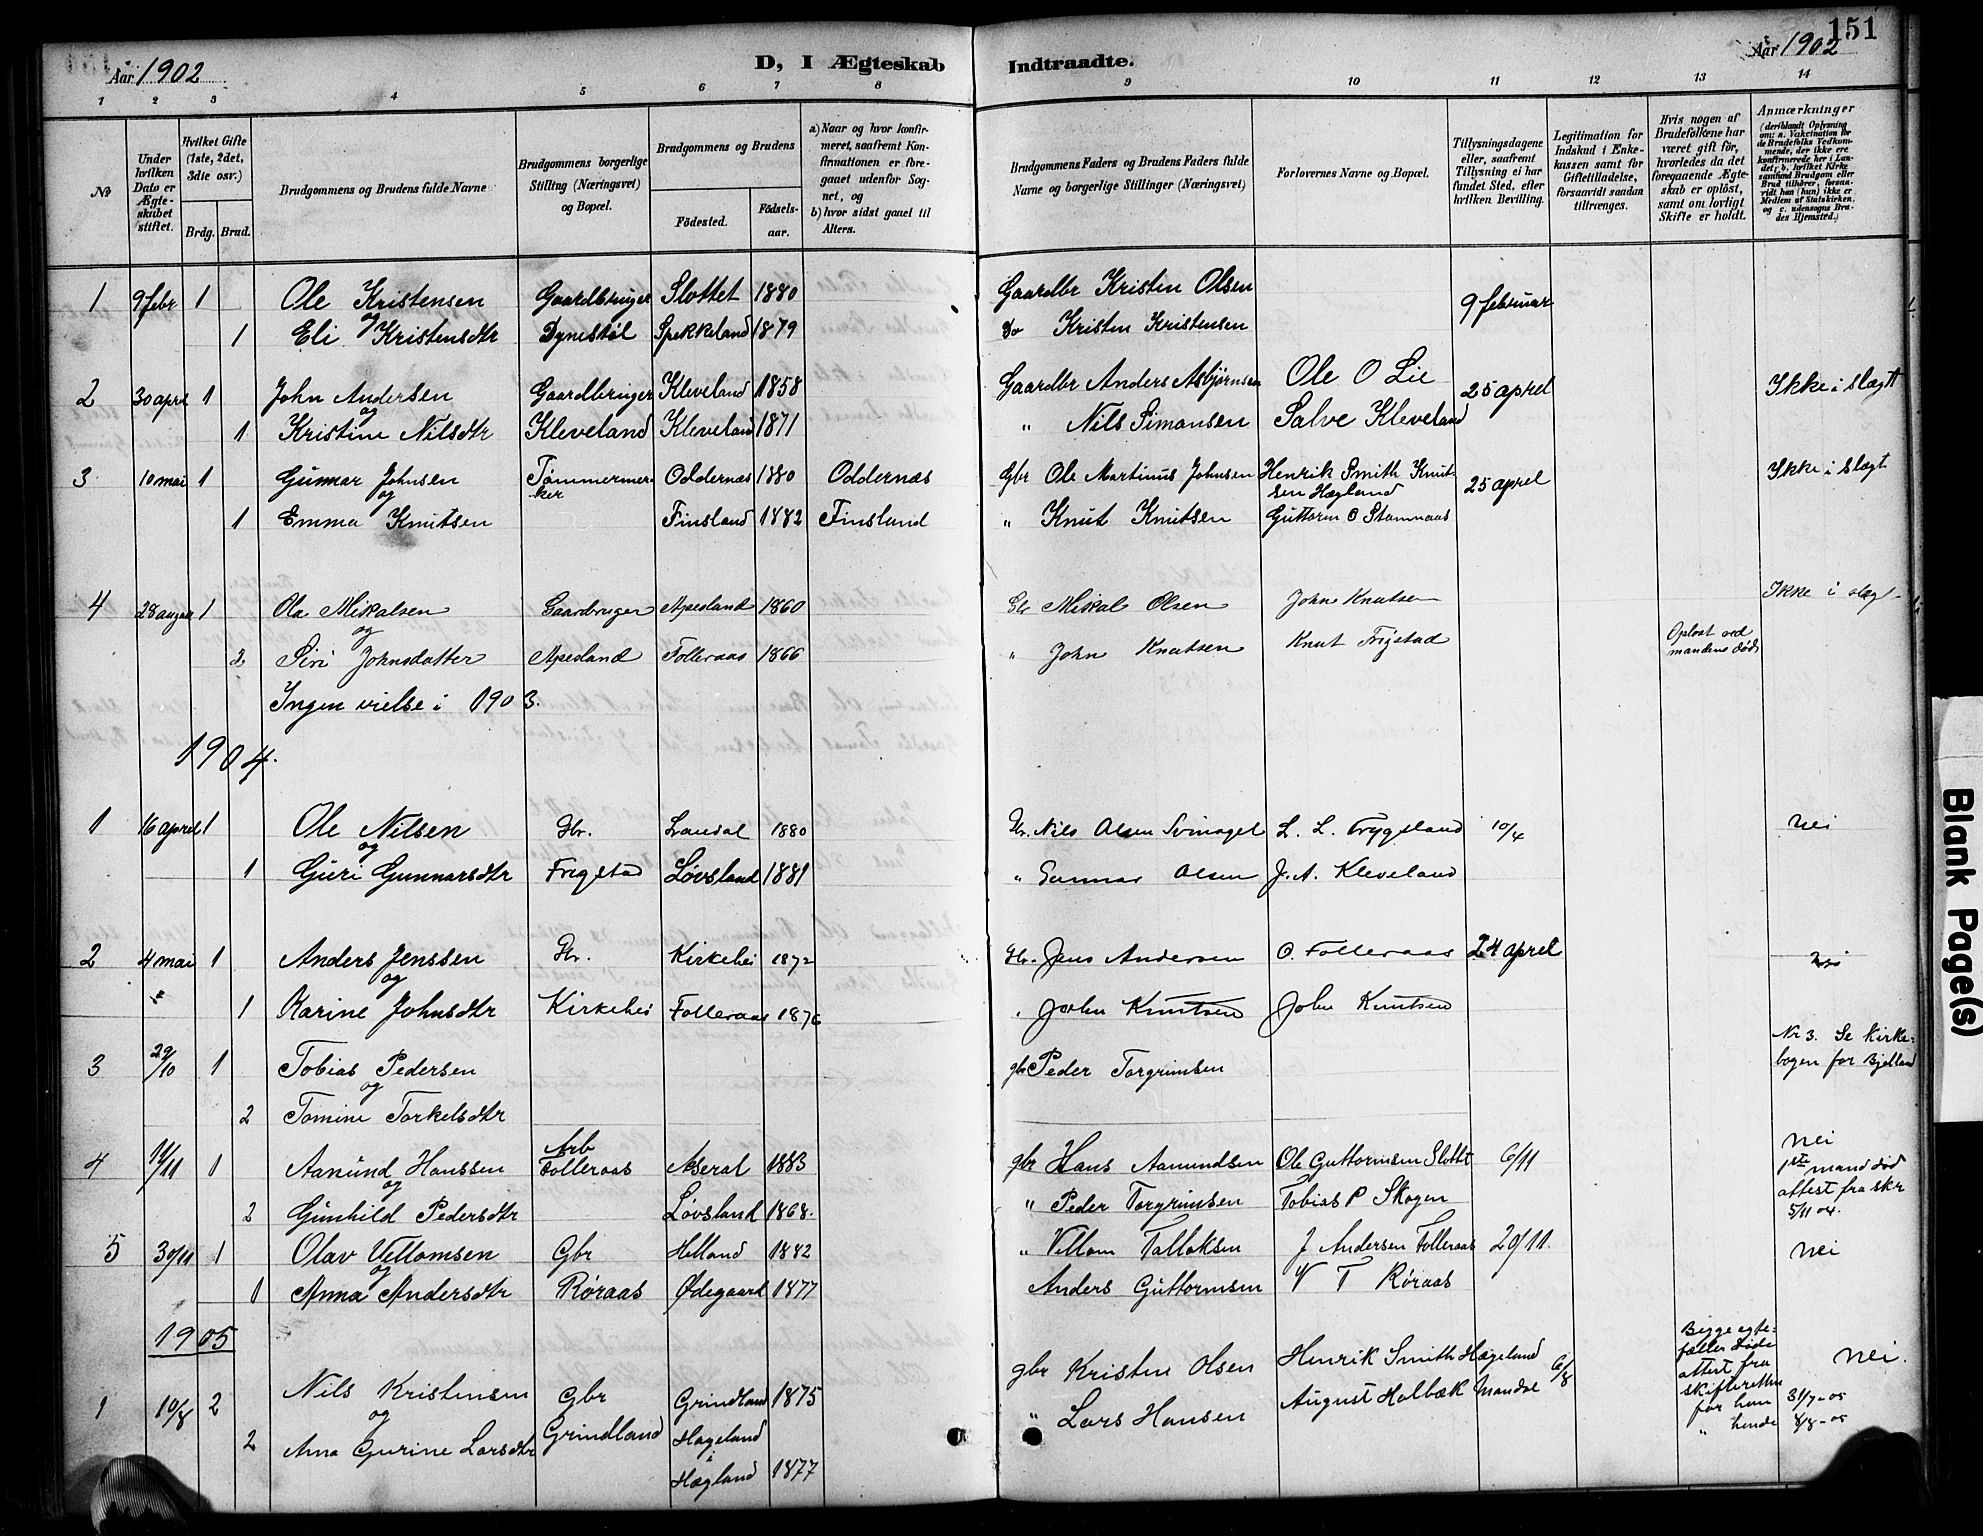 151
Aar 1902
D, I Ægteskab Indtraadte.
Aar 1902
1 2 3 4 5 6 7 8 9 10 11 12 13 14
No
Under hvilken Dato er Ægteskabet stiftet.
Hvilket Gifte (1ste, 2det, 3die osv.)
Brdg. Brud.
Brudgommens og Brudens fulde Navne
Brudgommens borgerlige Stilling (Næringsvei) og Bopæl.
Brudgommens og Brudens
Fødested.
Fødsels-aar.
a) Naar og hvor konfirmeret, saafremt Konfirmationen er foregaaet udenfor Sognet, og
b) hvor sidst gaaet til Alters.
Brudgommens Faders og Brudens Faders fulde Navne og borgerlige Stillinger (Næringsvei)
Forlovernes Navne og Bopæl.
Tillysningsdagene eller, saafremt Tillysning ei har fundet Sted, efter hvilken Bevilling.
Legitimation for Indskud i Enkekassen samt for Giftetilladelse, forsaavidt saadan tiltrænges.
Hvis nogen af Brudefolkene har været gift før, hvorledes da det foregaaende Ægteskab er opløst, samt om lovligt Skifte er holdt.
Anmærkninger
(deriblandt Oplysning om: a. Vakcination for de Brudefolks Vedkommende, der ikke ere konfirmerede her i Landet; b. hvilket Kirkesamfund Brudgom eller Brud tilhører, forsaavidt han (hun) ikke er Medlem af Statskirken, og c. udensogns Brudes Hjemsted.)
1 9 febr 1 Ole Kristensen Gaardbruger Slottet 1880 Gaardbr Kristen Olsen 9 februar
og
1 Eli Kristensdtr Dynestøl Spekkeland 1879 Do Kristen Kristensen
2 30 aprel 1 John Andersen Gaardbruger Kleveland 1858 Gaardbr Anders Asbjørnsen Ole O Lie 25 aprel Ikke i slægt
og
1 Kristine Nilsdtr Kleveland Kleveland 1871 " Nils Simonsen Salve Kleveland
3 10 mai 1 Gunnar Johnsen Tømmermerker Oddernæs 1880 Oddernæs Gbr Ole Martinus Johnsen Henrik Smith Knutsen Hægland 25 aprel Ikke i slægt
og
1 Emma Knutsen Finsland 1882 Finsland " Knut Knutsen Guttorm O Stamnaas
4 28 august 1 Ola Mikalsen Gaardbruger Apesland 1860 Gbr Mikal Olsen John Knutsen Ikke i slægt
og
2 Siri Johnsdatter Apesland Folleraas 1866 " John Knutsen Knut Frigstad Opløst ved mandens død
Ingen vielse i 1903.
1904.
1 16 aprel 1 Ole Nilsen Gbr. Laudal 1880 Gbr. Nils Olsen Svinagel L. L. Trygsland 10/4 nei
og
1 Guri Gunnarsdtr Frigstad Løvsland 1881 " Gunnar Olsen J. A. Kleveland
2 4 mai 1 Anders Jenssen Gbr. Kirkehei 1872 Gbr. Jens Andersen O. Folleraas 24 aprel nei
og
1 Karine Johnsdtr Kirkehei Folleraas 1876 John Knutsen John Knutsen
3 29/10 1 Tobias Pedersen gbr Peder Torgrimsen Nr 3. Se kirkebogen for Bjelland
og
2 Tomine Torkelsdtr
4 19/11 1 Aanund Hanssen Arb Folleraas Aseral 1883 gbr Hans Aanundsen Ole Guttormsen Slottet 6/11 nei
og
2 Gunhild Pedersdtr Løvsland 1868. " Peder Torgrimsen Tobias P Skogen 1ste mand død attest fra skr 5/11 04.
5 30/11 1 Olav Villomsen Gbr Helland 1882 " Villom Tallaksen J Andersen Folleraas 20/11. nei
og
1 Anna Andersdtr Røraas Ødegaard 1877 Anders Guttormsen V T Røraas
1905
1 10/8 2 Nils Kristensen Gbr Grindland 1875 gbr Kristen Olsen Henrik Smith Hægeland 6/8 Begge egtefæller døde attest fra skifteretten for ham 31/7-05 nei.
og
2 Ana Gurine Larsdtr Grindland Hageland i Hægland 1877 " Lars Hansen August Holbæk Mandal " hende 8/8-05
Blank Page(s)